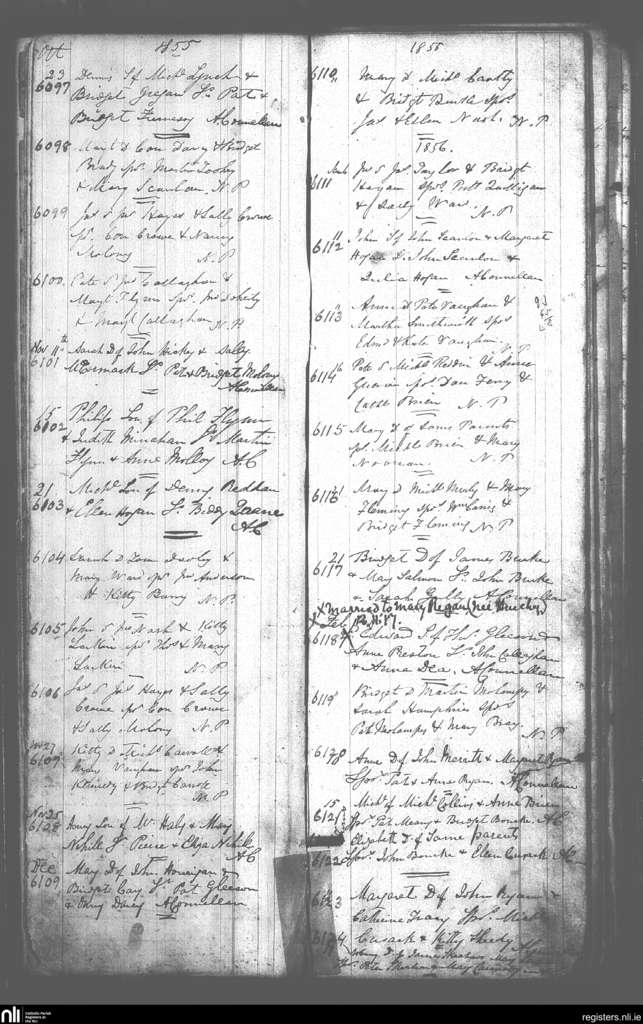 Oct 1855
23 Dennis S of Michl Lynch &
6097 Bridget Gregan Sp Pat &
Bridget Finnessy AConnellan
6098 Margt D Con Davy & Bridget
Brady Spr Martin Toohy
& Mary Scanlon N.P
6099 Jas S Jas Hayes & Sally Crowe
Sp. Con Crowe & Nancy
Molony N.P
6100 Pat S Jas Callaghan &
Margt Flynn Spr Jas Doherty
& Margt Callaghan N.P
Nov 11th Sarah D of John Hickey & Sally
6101 McCormack Sp Pat & Bridget Molony
AConnellan
15 Philip Son of Phil Flynn
6102 & Judith Minehan Sp Martin
Flynn & Anne Molloy AC
21 Michl Son of Denny Redhan
6103 & Ellen Hogan Sp Biddy
AC
6104 Sarah D Tom &
Mary Ward Spr Jas Anderson
& Kitty Barry N.P.
6105 John S Jas Nash & Kitty
Larkin Spr Thos & Mary
Larkin N.P
6106 Jas S Jas Hayes & Sally
Crowe Spr Con Crowe
& Sally Molony N.P
Nov 27 Kitty D Michl Carroll &
6107 Mary Vaughan Spr John
Kennedy & Bridgt Carroll
N.P
Nov 25 Henry Son of Wm Haly & Mary
6108 Nihill Sp Pierce & Eliza Nihill
AC
Dec Mary D of John Hourigan &
6109 Bridget Gay Sp Pat Gleeson
& Mary Darcy AConnellan
1855
6110 Mary D Michl Carthy
& Bridgt Burke Spr
Jas & Ellen Nash. N.P
1856.
6111 Jas S Jas Taylor & Bridgt
Hogan Spr Patt Quilligan
& Ward. N.P
11 John S of John Scanlon & Margaret
6112 Hogan Sp John Scanlon &
Julia Hogan AConnellan
11 Anne D Pat Vaughan &
6113 Martha Smithwick Spr
Edmd & Kate Vaughan.
N.P
6114 Pat S Michl Reddin & Anne
Guerin Spr. Dan Terry &
Cathe Brien N.P
6115 Mary D of Same Parents
Sp. Michl Brien & Mary
Noonan. N.P
6116 Mary D Michl & Mary
Fleming Spr Wm &
Bridget Fleming N.P
21 Bridget D of James Burke
6117 & May Salmon Sp John Burke
& Sarah AConnellan
X Married to Mary Regan (nee Sheehy)
X Feb
6118 Edward S of Thos Gleeson &
Anne Preston Sp John Callaghan
& Anne Dea. AConnellan
6119 Bridget D Martin Molumpy &
Sarah Humphries Spr
Pat Molumpy & Mary Bray.
N.P
6120 Anne D of John Meredith & Margaret Ryan
Spr Pat & Anne Ryan. AConnellan
15 Michl of Michl Collins & Anne Brien
6121 Spr Pat Meany & Bridget Bourke. AC
Elizabeth D of Same parents
6122 Spr John Bourke & Ellen Cusack AC
Margaret D of John Ryan &
6123 Catherine Tracy Spr Michl
Cusack & Kitty Sheedy
6124
nli
Catholic Parish
Registers at
the NLI
registers.nli.ie